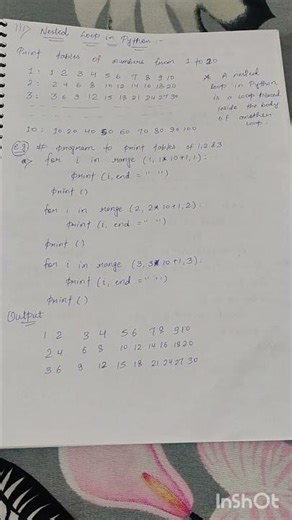 111) Nested Loop in Python :-
Print tables of numbers from 1 to 10
1 : 1 2 3 4 5 6 7 8 9 10
2 : 2 4 6 8 10 12 14 16 18 20
3 : 3 6 9 12 15 18 21 24 27 30
* A nested
loop in Python
is a loop
inside the body
of another
loop.
10 : 10 20 40 50 60 70 80 90 100
e.g # program to print tables of 1, 2 & 3
for i in range (1, 1*10+1, 1):
print (i, end = " ")
print ()
for i in range (2, 2*10+1, 2):
print (i, end = " ")
print ()
for i in range (3, 3*10+1, 3):
print (i, end = " ")
print ()
Output
1 2 3 4 5 6 7 8 9 10
2 4 6 8 10 12 14 16 18 20
3 6 9 12 15 18 21 24 27 30
InShOt